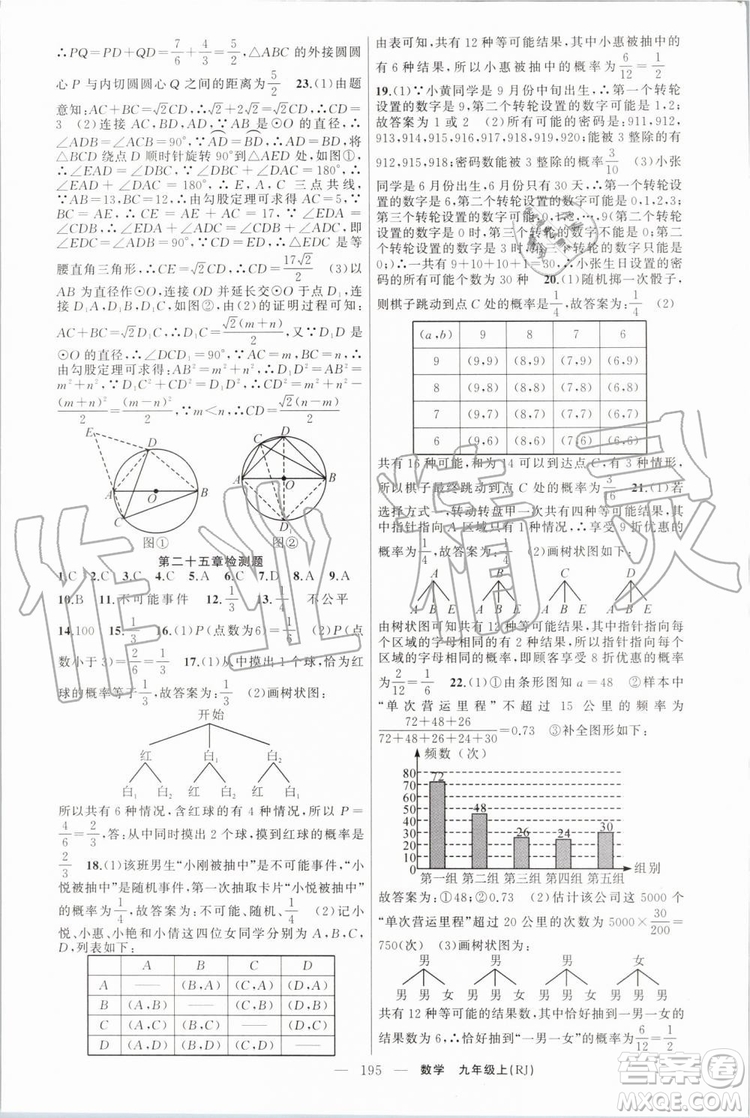 ∴PQ=PD+QD=7/6+4/3=5/2,△ABC 的外接圆圆
心 P 与内切圆圆心 Q 之间的距离为 5/2 23.(1)由题
意知:AC+BC=√2CD,∴√2+2√2=√2CD,∴CD=
3 (2)连接 AC,BD,AD,∵AB 是⊙O 的直径,∴
∠ADB=∠ACB=90°,∵AD=BD,∴AD=BD,将
△BCD 绕点 D 顺时针旋转
∠EAD+∠DAC=180°,∴E,A,C 三点共线,
∵AB=13,BC=12,∴由勾股定理可求得:AC=5,
∵BC=AE,∴CE=AE+AC=17,∵∠EDA=
∠CDB,∴∠EDA+∠ADC=∠CDB+∠ADC,即
∠EDC=∠ADB=90°,∵CD=ED,∴△EDC 是等
腰直角三角形,∴CD=17√2/2 (3)以
AB 为直径作⊙O,连接 DO 并延长交⊙O 于点 D₁,
连接 D₁A,D₁B,D₁C,如图②由(2)的证明过程可知:
D₁C=√2(m+n)/2,又∵D₁D 是
⊙O 的直径,∴∠DCD₁=90°,∵AC=m,BC=n,∴
由勾股定理可求得:AB²=m²+n²,∴D₁D²=AB²=
m²+n²,∵D₁C²+CD²=D₁D²,∴CD²=m²+n²−
(m+n)²/2=(m−n)²/2,∵m<n,∴CD=√2(n−m)/2
E D A O B C
图①
C D A O B D₁
图②
第二十五章检测题
1.C 2.C 3.D 4.C 5.A 6.D 7.C 8.B 9.A
10.B 11.不可能事件 12.1/3 13.不公平
14.100 15.1/3 16.(1)P(点数为6)=1/6 (2)P(点
数小于3)=2/6=1/3 17.(1)从中摸出1个球,恰为红
球的概率等于1/3,故答案为:1/3 (2)画树状图:
开始
红 白₁ 白₂
白₁ 白₂ 红 白₂ 红 白₁
所以共有 6 种情况,含红球的有 4 种,所以 P=
4/6=2/3,答:从中同时摸出 2 个球,摸到红球的概率是
2/3 18.(1)该班男生“小刚被抽中”是不可能事件,“小
悦被抽中”是随机事件,第一次抽取卡片“小悦被抽中”
的概率为1/4,故答案为:不可能、随机、1/4 (2)记小
悦、小惠、小艳和小倩这四位女同学分别为 A、B、C、
D,列表如下:
A B C D
A —— (B,A) (C,A) (D,A)
B (A,B) —— (C,B) (D,B)
C (A,C) (B,C) —— (D,C)
D (A,D) (B,D) (C,D) ——
由表可知,共有 12 种等可能结果,其中小惠被抽中的
有 6 种结果,所以小惠被抽中的概率为6/12=1/2
19.(1)∵小黄同学是 9 月份中旬出生,∴第一个转轮
设置的数字是9,第二个转轮设置的数字可能是1,2;
故答案为1 或 2 (2)所有可能的密码是:911,912,
913,914,915,916,917,918,919,920;能被3整除的有
912,915,918;密码数能被 3 整除的概率3/10 (3)小张
同学是 6 月份出生,6 月份只有 30 天,∴第一个转轮
设置的数字是6,第二个转轮设置的数字可能是0,1,2,3;
第二个转轮设置的数字是 0,
∴共有 9+10+10+1=30,∴小张生日设置的密
码的所有可能个数为 30 种 20.(1)随机掷一次骰子,
则棋子跳动到点 C 处的概率是1/4,故答案为:1/4 (2)
(a,b) 9 8 7 6
9 (9,9) (8,9) (7,9) (6,9)
8 (9,8) (8,8) (7,8) (6,8)
7 (9,7) (8,7) (7,7) (6,7)
6 (9,6) (8,6) (7,6) (6,6)
共有 16 种可能,和为 14 可以到达点 C,有 3 种情形,
所以棋子最终跳动到点 C 处的概率为 21.(1)若
选择方式一,转动转盘甲一次共有四种等可能结果,其
中指针指向 A 区域只有1种情况,∴享受 9 折优惠的
概率为1/4,故答案为:1/4 (2)画树状图如下:
A B C D
A B E A B E A B E A B E
由树状图可知共有 12 种等可能的结果,其中指针指向每
个区域的字母相同的有 2 种结果,所以指针指向每个
区域的字母相同的概率,即顾客享受 8 折优惠的概率为
2/12=1/6 22.(1)①由条形图知 a=48 ②样本中
“单次营运里程” 不超过 15 公里的频率为
72+48+26/72+48+26+24+30=0.73 ③补全图形如下:
频数 (次)
80
70
60
50
40
30
20
10
0
72 48 26 24 30
组别
第一组 第二组 第三组 第四组 第五组
故答案为:①48;②0.73 (2)估计该公司这 5000 个
“单次营运里程”超过 20 公里的次数为5000×30/200=
750(次) (3)画树状图为:
男 男 男 女
男 男 女 男 男 女 男 男 女 男 男 男
共有12种等可能的结果数,其中恰好抽到一男一女的
的结果数为 6,∴恰好抽到“一男一女”的概率为6/12=1/2
195 数学 九年级上(RJ)
作业精灵
答案圈
MXQE.COM